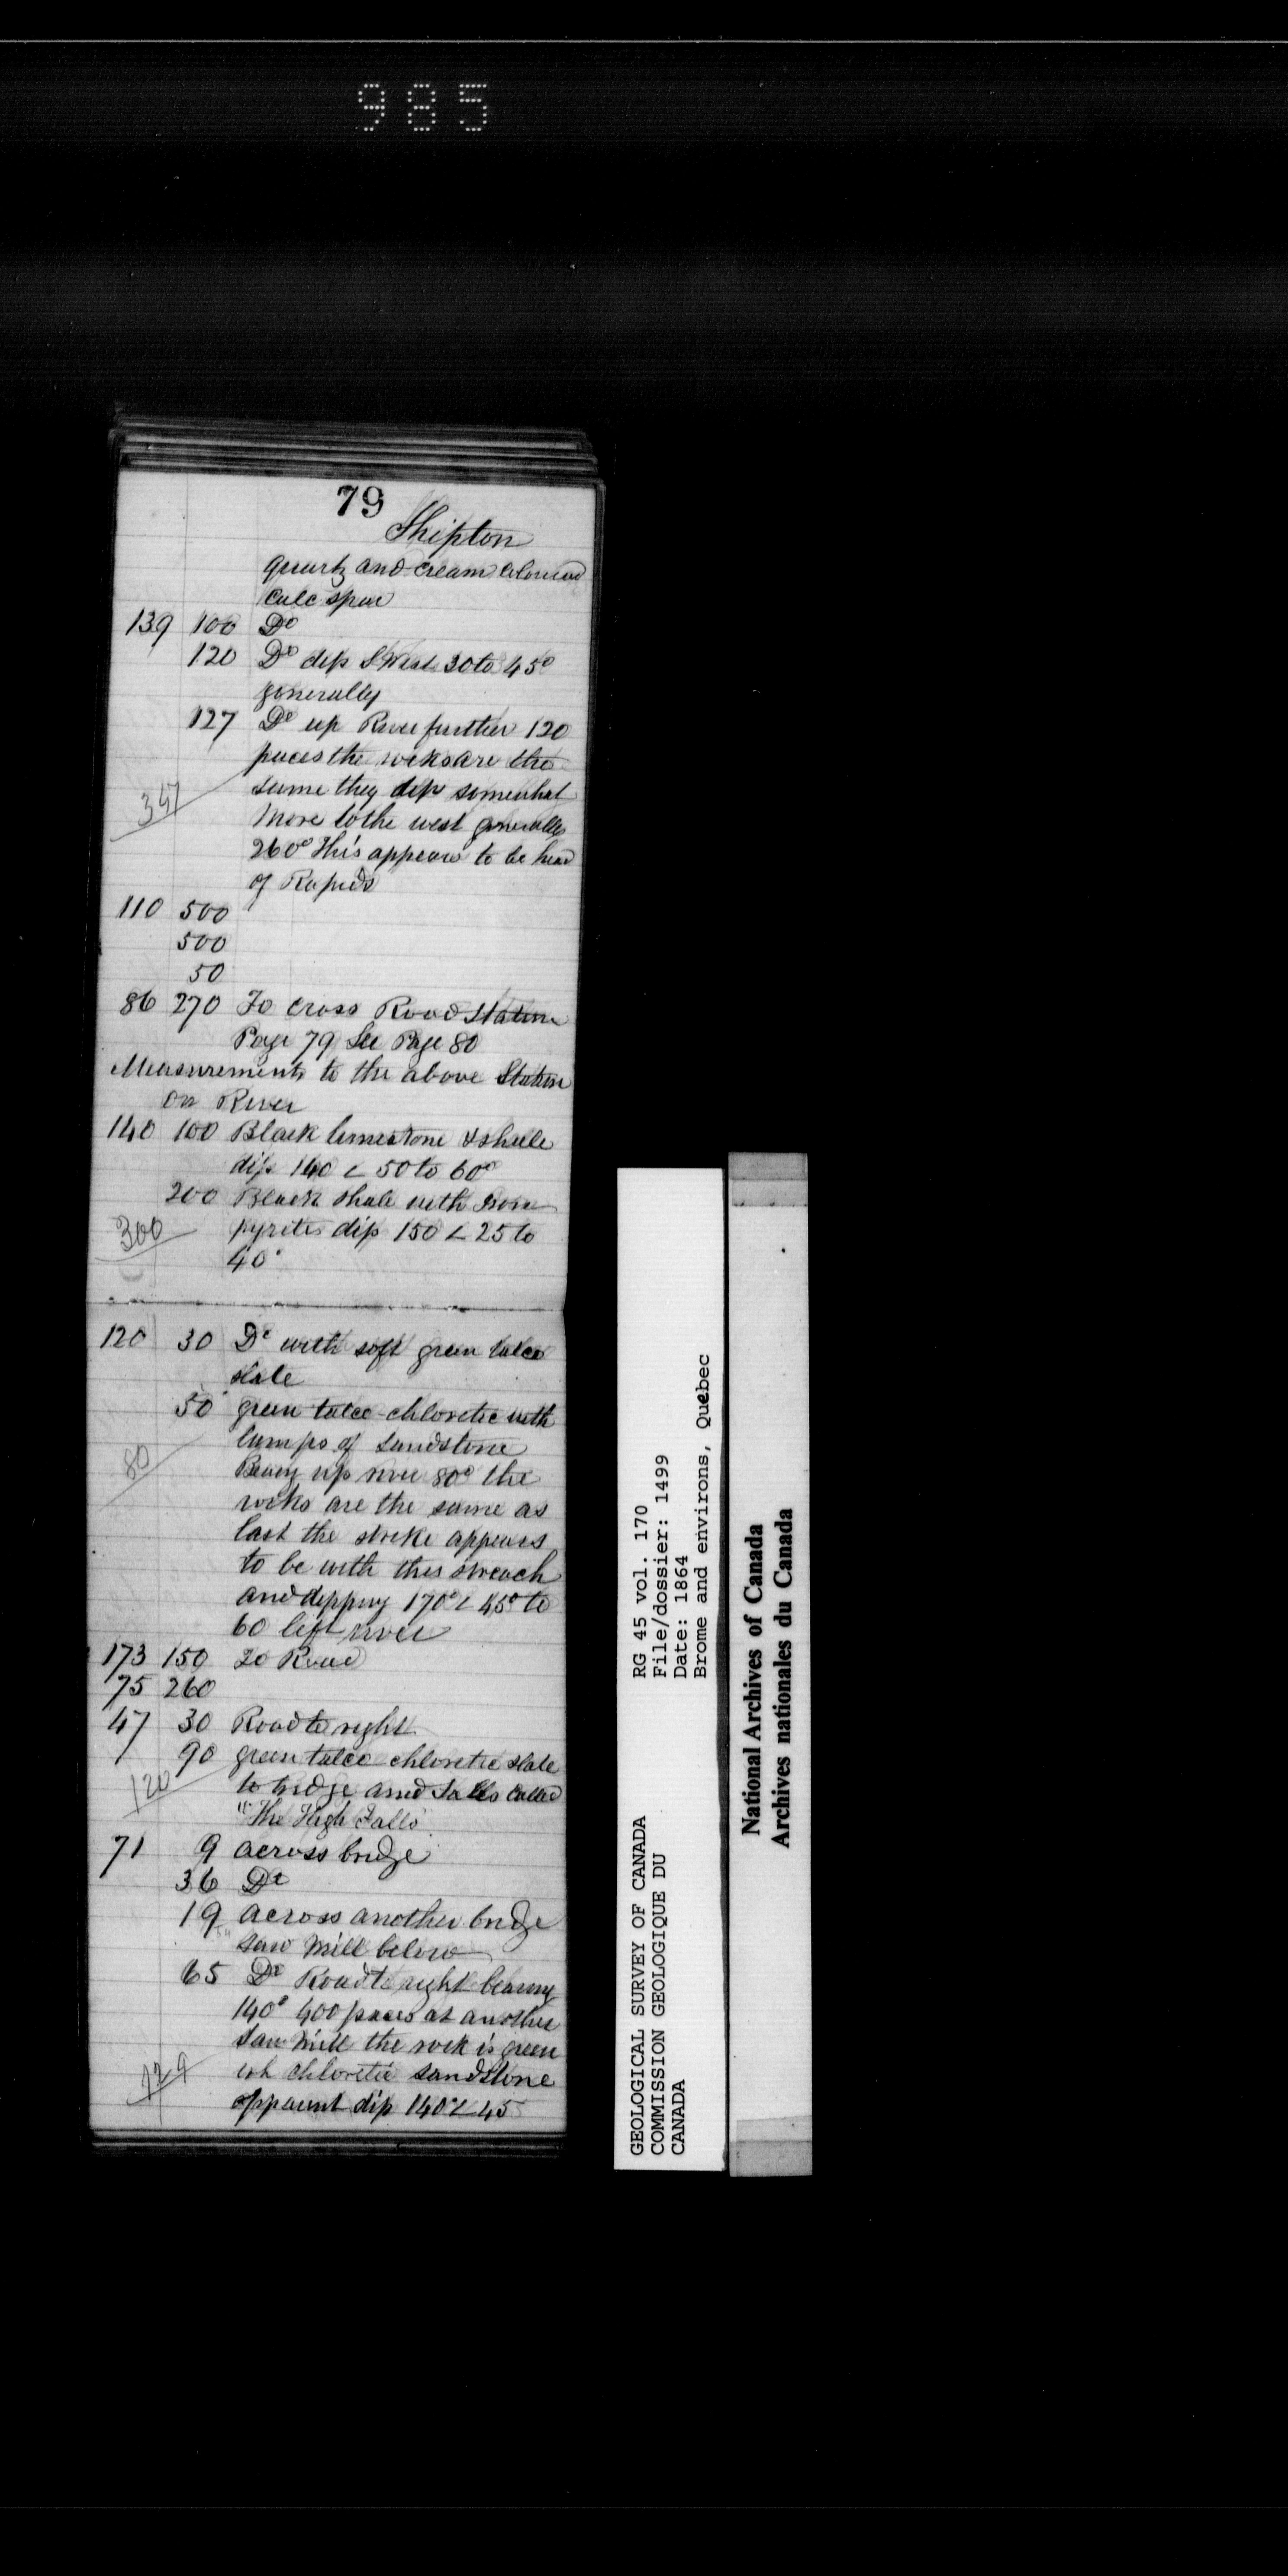 985
79
Shipton
quartz and cream coloured
calc spar
139 100 Do
120 Do dip S West 30 to 45°
generally
127 Do up River further 120
paces the rocks are the
same they dip somewhat
347
more to the west generally
260° This appears to be head
of Rapids
110 500
500
50
86 270 To cross Road Station
Page 79 See Page 80
Measurements to the above Station
on River
140 100 Black limestone & shale
dip 140 ∠ 50 to 60°
200 Black shale with Iron
300
pyrites dip 150 ∠ 25 to
40°
120 30 Do with soft green talco
slate
50 green talco-chloretic with
lumps of sandstone
80
Bearing up river 80° the
rocks are the same as
last the strike appears
to be with this streach
and dipping 170° ∠ 45° to
60 left river
173 150 To Road
75 260
47 30 Road to right
90 green talco chloretic slate
120
to bridge and Falls called
"The High Falls"
71 9 across bridge
36 Do
19 across another bridge
saw mill below
65 Do Road to right bearing
140° 400 paces at another
saw mill the rock is green
129
ish chloretic sandstone
apparent dip 140° ∠ 45
GEOLOGICAL SURVEY OF CANADA
COMMISSION GEOLOGIQUE DU
CANADA
RG 45 vol. 170
File/dossier: 1499
Date: 1864
Brome and environs, Quebec
National Archives of Canada
Archives nationales du Canada